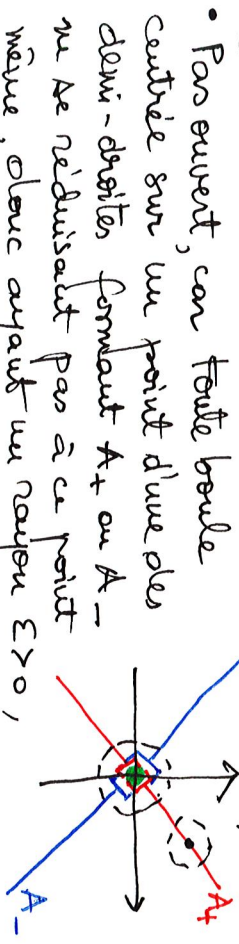 • Pas ouvert, car toute boule
centrée sur un point d'une des
demi-droites formant A+ ou A-
ne se réduisant pas à ce point
même, donc ayant un rayon ε>0,
A+
A-